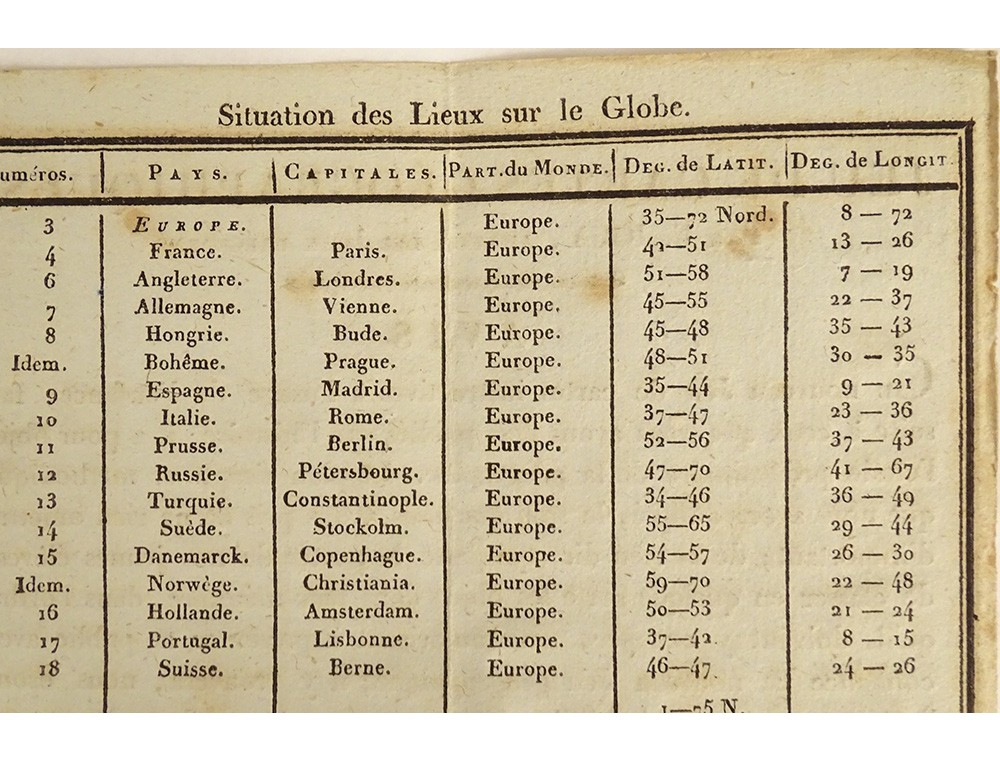 Situation des Lieux sur le Globe.
uméros. PAYS. CAPITALES. PART. du MONDE. DEG. de LATIT. DEG. de LONGIT.
3 EUROPE. Europe. 35—72 Nord. 8 — 72
4 France. Paris. Europe. 42—51 13 — 26
6 Angleterre. Londres. Europe. 51—58 7 — 19
7 Allemagne. Vienne. Europe. 45—55 22 — 37
8 Hongrie. Bude. Europe. 45—48 35 — 43
Idem. Bohême. Prague. Europe. 48—51 30 — 35
9 Espagne. Madrid. Europe. 35—44 9 — 21
10 Italie. Rome. Europe. 37—47 23 — 36
11 Prusse. Berlin. Europe. 52—56 37 — 43
12 Russie. Pétersbourg. Europe. 47—70 41 — 67
13 Turquie. Constantinople. Europe. 34—46 36 — 49
14 Suède. Stockolm. Europe. 55—65 29 — 44
15 Danemarck. Copenhague. Europe. 54—57 26 — 30
Idem. Norwège. Christiania. Europe. 59—70 22 — 48
16 Hollande. Amsterdam. Europe. 50—53 21 — 24
17 Portugal. Lisbonne. Europe. 37—42 8 — 15
18 Suisse. Berne. Europe. 46—47 24 — 26
1—75 N.